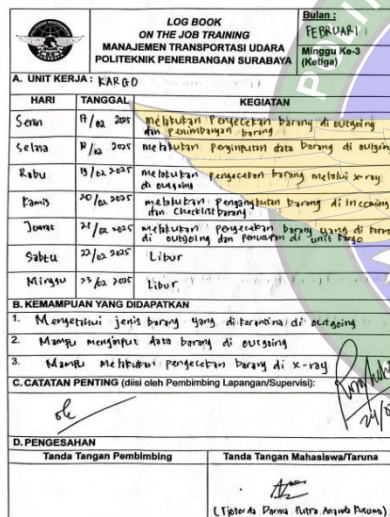 LOG BOOK
ON THE JOB TRAINING
MANAJEMEN TRANSPORTASI UDARA
POLITEKNIK PENERBANGAN SURABAYA
Bulan :
FEBRUARI
Minggu Ke-3
(Ketiga)
A. UNIT KERJA : KARGO
HARI TANGGAL KEGIATAN
Senin 17/02 2025 melakukan Pengecekan barang di outgoing
dan penimbangan barang
Selasa 18/02 2025 melakukan penginputan data barang di outgoing
Rabu 19/02 2025 melakukan pengecekan barang melalui x-ray
di outgoing
Kamis 20/02 2025 melakukan pengangkutan barang di incoming
dan Checklist barang
Jumat 21/02 2025 melakukan pengecekan barang yang di
di outgoing dan di unit kargo
Sabtu 22/02 2025 Libur
Minggu 23/02 2025 Libur
B. KEMAMPUAN YANG DIDAPATKAN
1. Mengetahui jenis barang yang dikarantina di outgoing
2. Mampu menginput data barang di outgoing
3. Mampu Melakukan pengecekan barang di x-ray
C. CATATAN PENTING (diisi oleh Pembimbing Lapangan/Supervisi):
ok
D. PENGESAHAN
Tanda Tangan Pembimbing Tanda Tangan Mahasiswa/Taruna
(Tjokorda Darma Putra Ananda Kusuma)